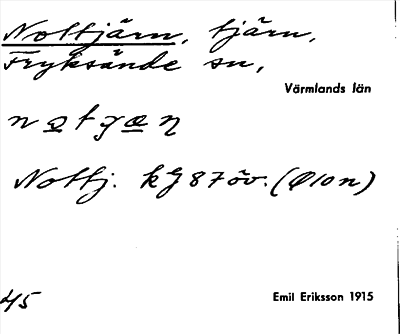 Nottjärn, tjärn,
Fryksände sn,
Värmlands län
Nottj. kg 87 öv. (Ø10n)
45
Emil Eriksson 1915